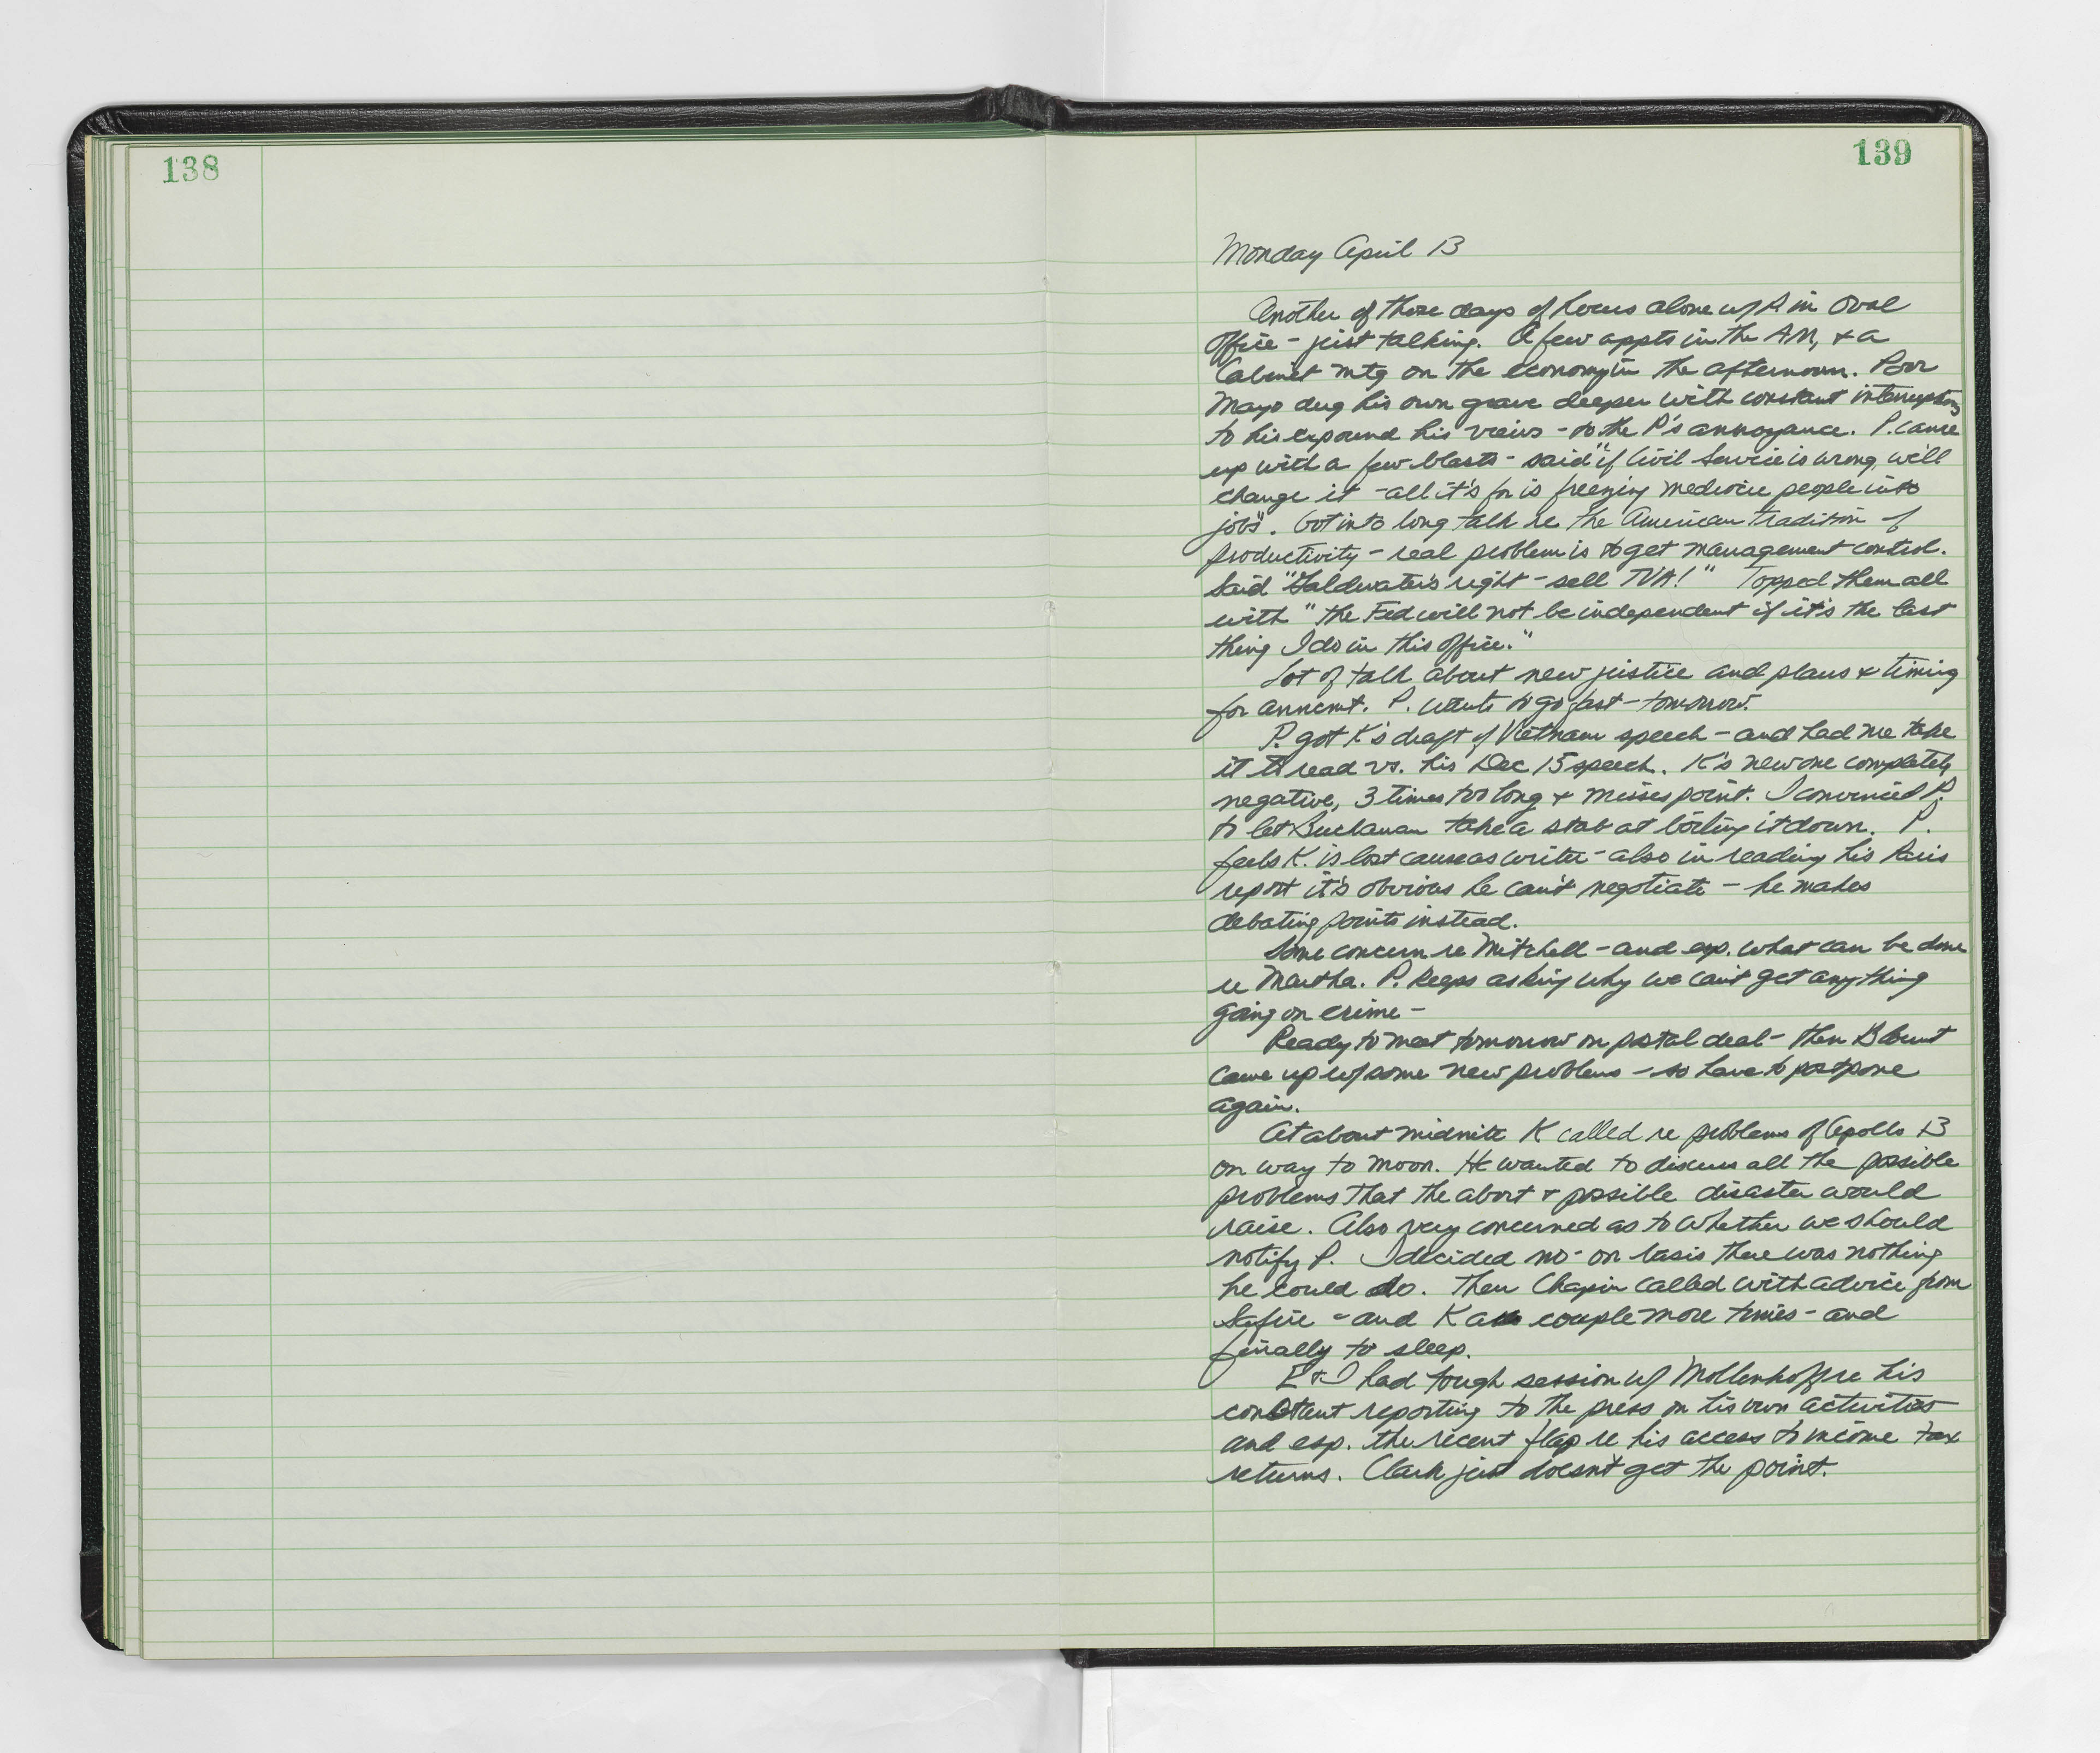 138
139
Monday April 13
Another of those days of hours alone w/P in Oval
Office - just talking. A few appts in the AM, & a
Cabinet mtg on the economy in the afternoon. Poor
Mayo dug his own grave deeper with constant interruptions
to his expound his views - to the P's annoyance. P. came
up with a few blasts - said "if Civil Service is wrong, will
change it - all it's for is freezing mediocre people into
jobs". Got into long talk re the American tradition of
productivity - real problem is to get management control.
Said "Goldwater's right - sell TVA!" Topped them all
with "the Fed will not be independent if it's the last
thing I do in this office."
Lot of talk about new justice and plans & timing
for anncmt. P. wants to go fast - tomorrow.
P. got K's draft of Vietnam speech - and had me take
it to read vs. his Dec 15 speech. K's new one completely
negative, 3 times too long & misses point. I convinced P.
to let Buchanan take a stab at boiling it down. P.
feels K. is lost cause as writer - also in reading his Paris
report it's obvious he can't negotiate - he makes
debating points instead.
Some concern re Mitchell - and esp. what can be done
re Martha. P. keeps asking why we can't get anything
going on crime -
Ready to meet tomorrow on postal deal - then Blount
came up w/some new problems - so have to postpone
again.
At about midnite K called re problems of Apollo 13
on way to moon. He wanted to discuss all the possible
problems that the abort & possible disaster would
raise. Also very concerned as to whether we should
notify P. I decided no - on basis there was nothing
he could do. Then Chapin called with advice from
Safire - and K a couple more times - and
finally to sleep.
E & I had tough session w/ Mollenhoff re his
constant reporting to the press on his own activities
and esp. the recent flap re his access to income tax
returns. Clark just doesn't get the point.